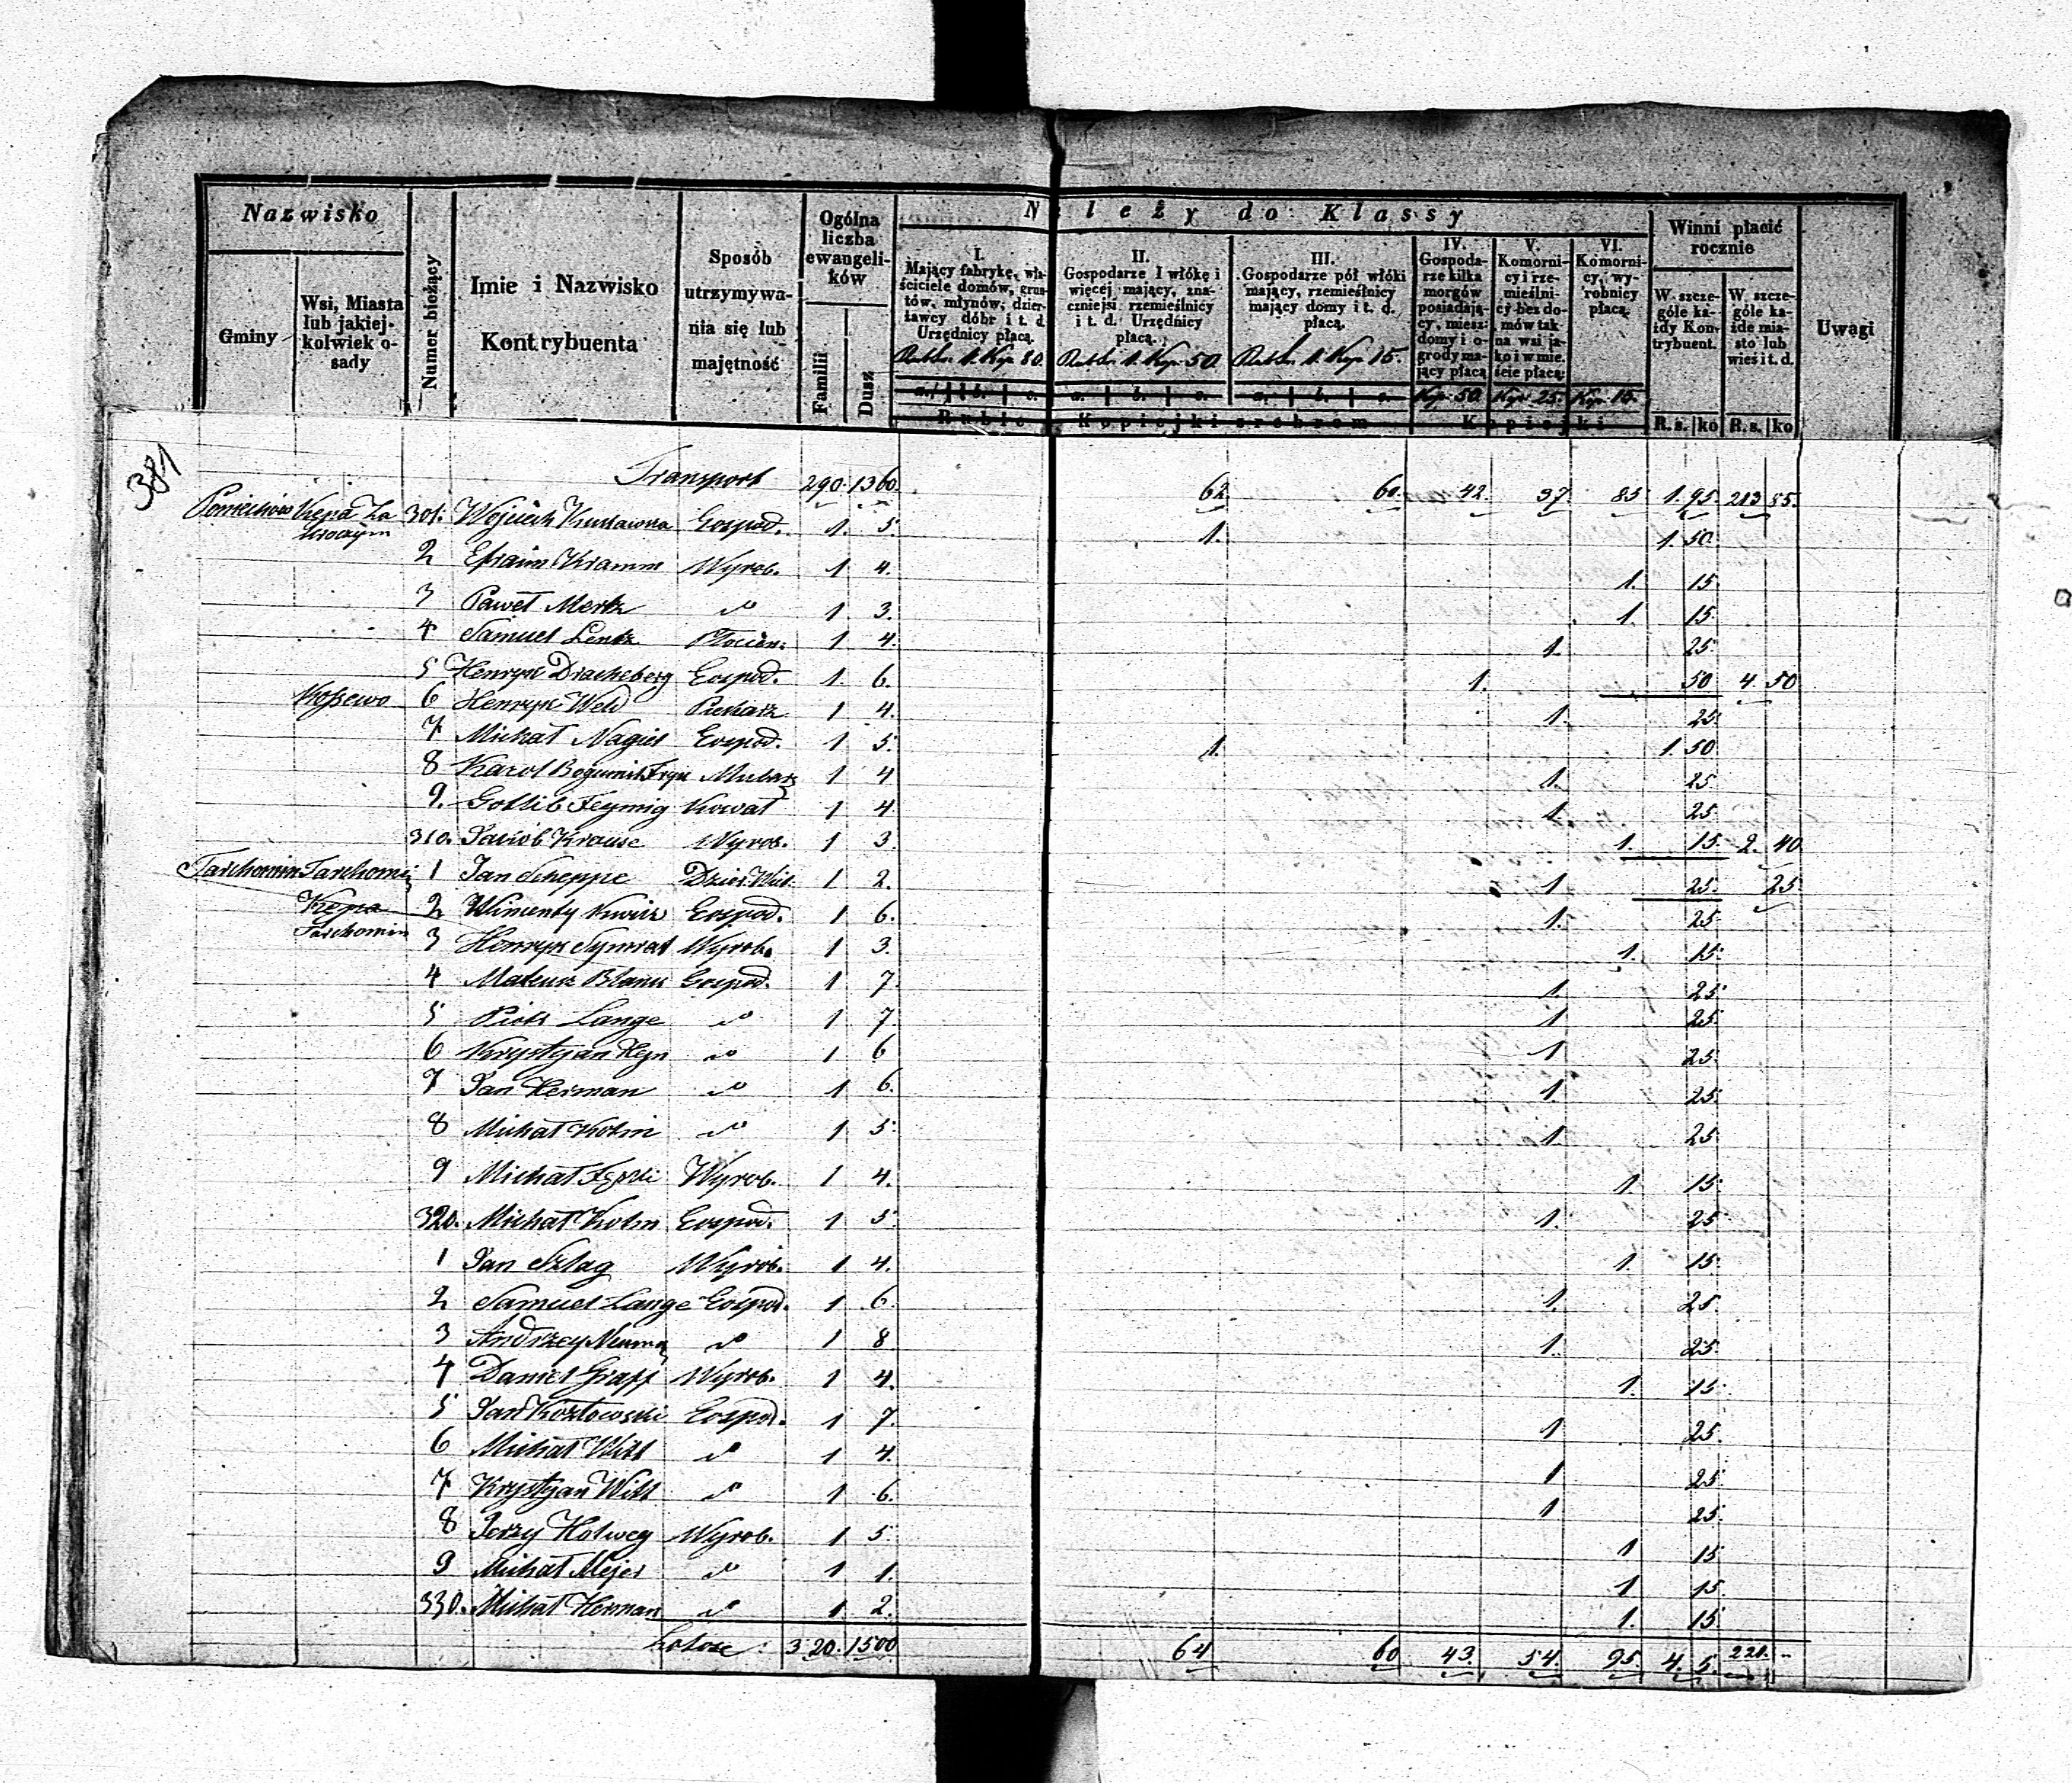 381
Nazwisko
Gminy
Wsi, Miasta lub jakiej-kolwiek o-sady
Numer bieżący
Imie i Nazwisko Kontrybuenta
Sposób utrzymywa-nia się lub majętność
Ogólna liczba ewangeli-ków
Familii
Dusz
Należy do Klassy
I. Mający fabrykę, wła-ściciele domów, grun-tów, młynów, dzier-żawcy dóbr i t. d. Urzędnicy płacą.
Rubr. 1. Kop. 80.
II. Gospodarze I włókę i więcej mający, zna-czniejsi rzemieślnicy i t. d. Urzędnicy płacą.
Rubr. 1. Kop. 50.
III. Gospodarze pół włóki mający, rzemieślnicy mający domy i t. d. płacą.
Rubr. 1. Kop. 15.
IV. Gospoda-rze kilka morgów posiadają-cy, miesz: domy i o-grody ma-jący płacą
Kop. 50.
V. Komorni-cy i rze-mieślni-cy bez do-mów tak na wsi ja-ko i w mie-ście płacą:
Kop. 25.
VI. Komorni-cy, wy-robnicy płacą.
Kop. 15.
a. b. c. a. b. c. a. b. c.
Ruble Kopiejki srebrem Kopiejki
Winni płacić rocznie
W szcze-góle ka-żdy Kon-trybuent.
W szcze-góle ka-żde mia-sto lub wieś i t. d.
R. s. ko R. s. ko
Uwagi
Transport 290. 1360. 62. 60. 42. 37 85 1. 95. 213 85.
Pomiechów Kępa Za 301. Wojciech Gospod. 1. 5. 1. 1. 50.
kroczym
2 Efraim Kramm Wyrob. 1 4. 1. 15
3 Paweł Mertz do 1 3. 1. 15.
4 Samuel Lentz Płócien: 1 4. 1. 25
5 Henryk Dracheberg Gospod. 1. 6. 1. 50 4. 50
Kossewo 6 Henryk Weld Piekarz 1 4. 1. 25.
7 Michał Nagiel Gospod. 1 5. 1. 1. 50
8 Karol Bogumił Mularz 1 4 1. 25
9. Gotlib Kowal 1 4 1. 25
310. Jakób Krause Wyrob. 1 3. 1. 15. 2. 40
Tarchomin Tarchomin 1 Jan Scheppe Dzier. 1 2. 1 25. 25
Kępa 2 Wincenty Gospod. 1 6. 1. 25
Tarchomin 3 Henryk Wyrob. 1 3. 1. 15.
4 Mateusz Blank Gospod. 1 7. 1. 25
5 Piotr Lange do 1 7. 1 25.
6 Krystyan Heyn do 1 6 1 25.
7 Jan Herman do 1 6. 1. 25.
8 Michał Kolm do 1 5. 1. 25
9 Michał Wyrob. 1 4. 1. 15.
320. Michał Kolm Gospod. 1 5. 1. 25
1 Jan Szlag Wyrob. 1 4. 1. 15.
2 Samuel Lange Gospod. 1 6. 1. 25
3 Andrzey Neuman do 1 8 1. 25.
4 Daniel Graff Wyrob. 1 4. 1. 15
5 Jan Kozłowski Gospod. 1 7. 1 25.
6 Michał Witt do 1 4. 1 25
7 Krystyan Witt do 1 6. 1 25.
8 Jerzy Holweg Wyrob. 1 5. 1 15
9 Michał Mejer do 1 1. 1 15
330. Michał Herman do 1 2. 1. 15
Latus: 320. 1500 64 60 43. 54. 95 4. 5. 221. -